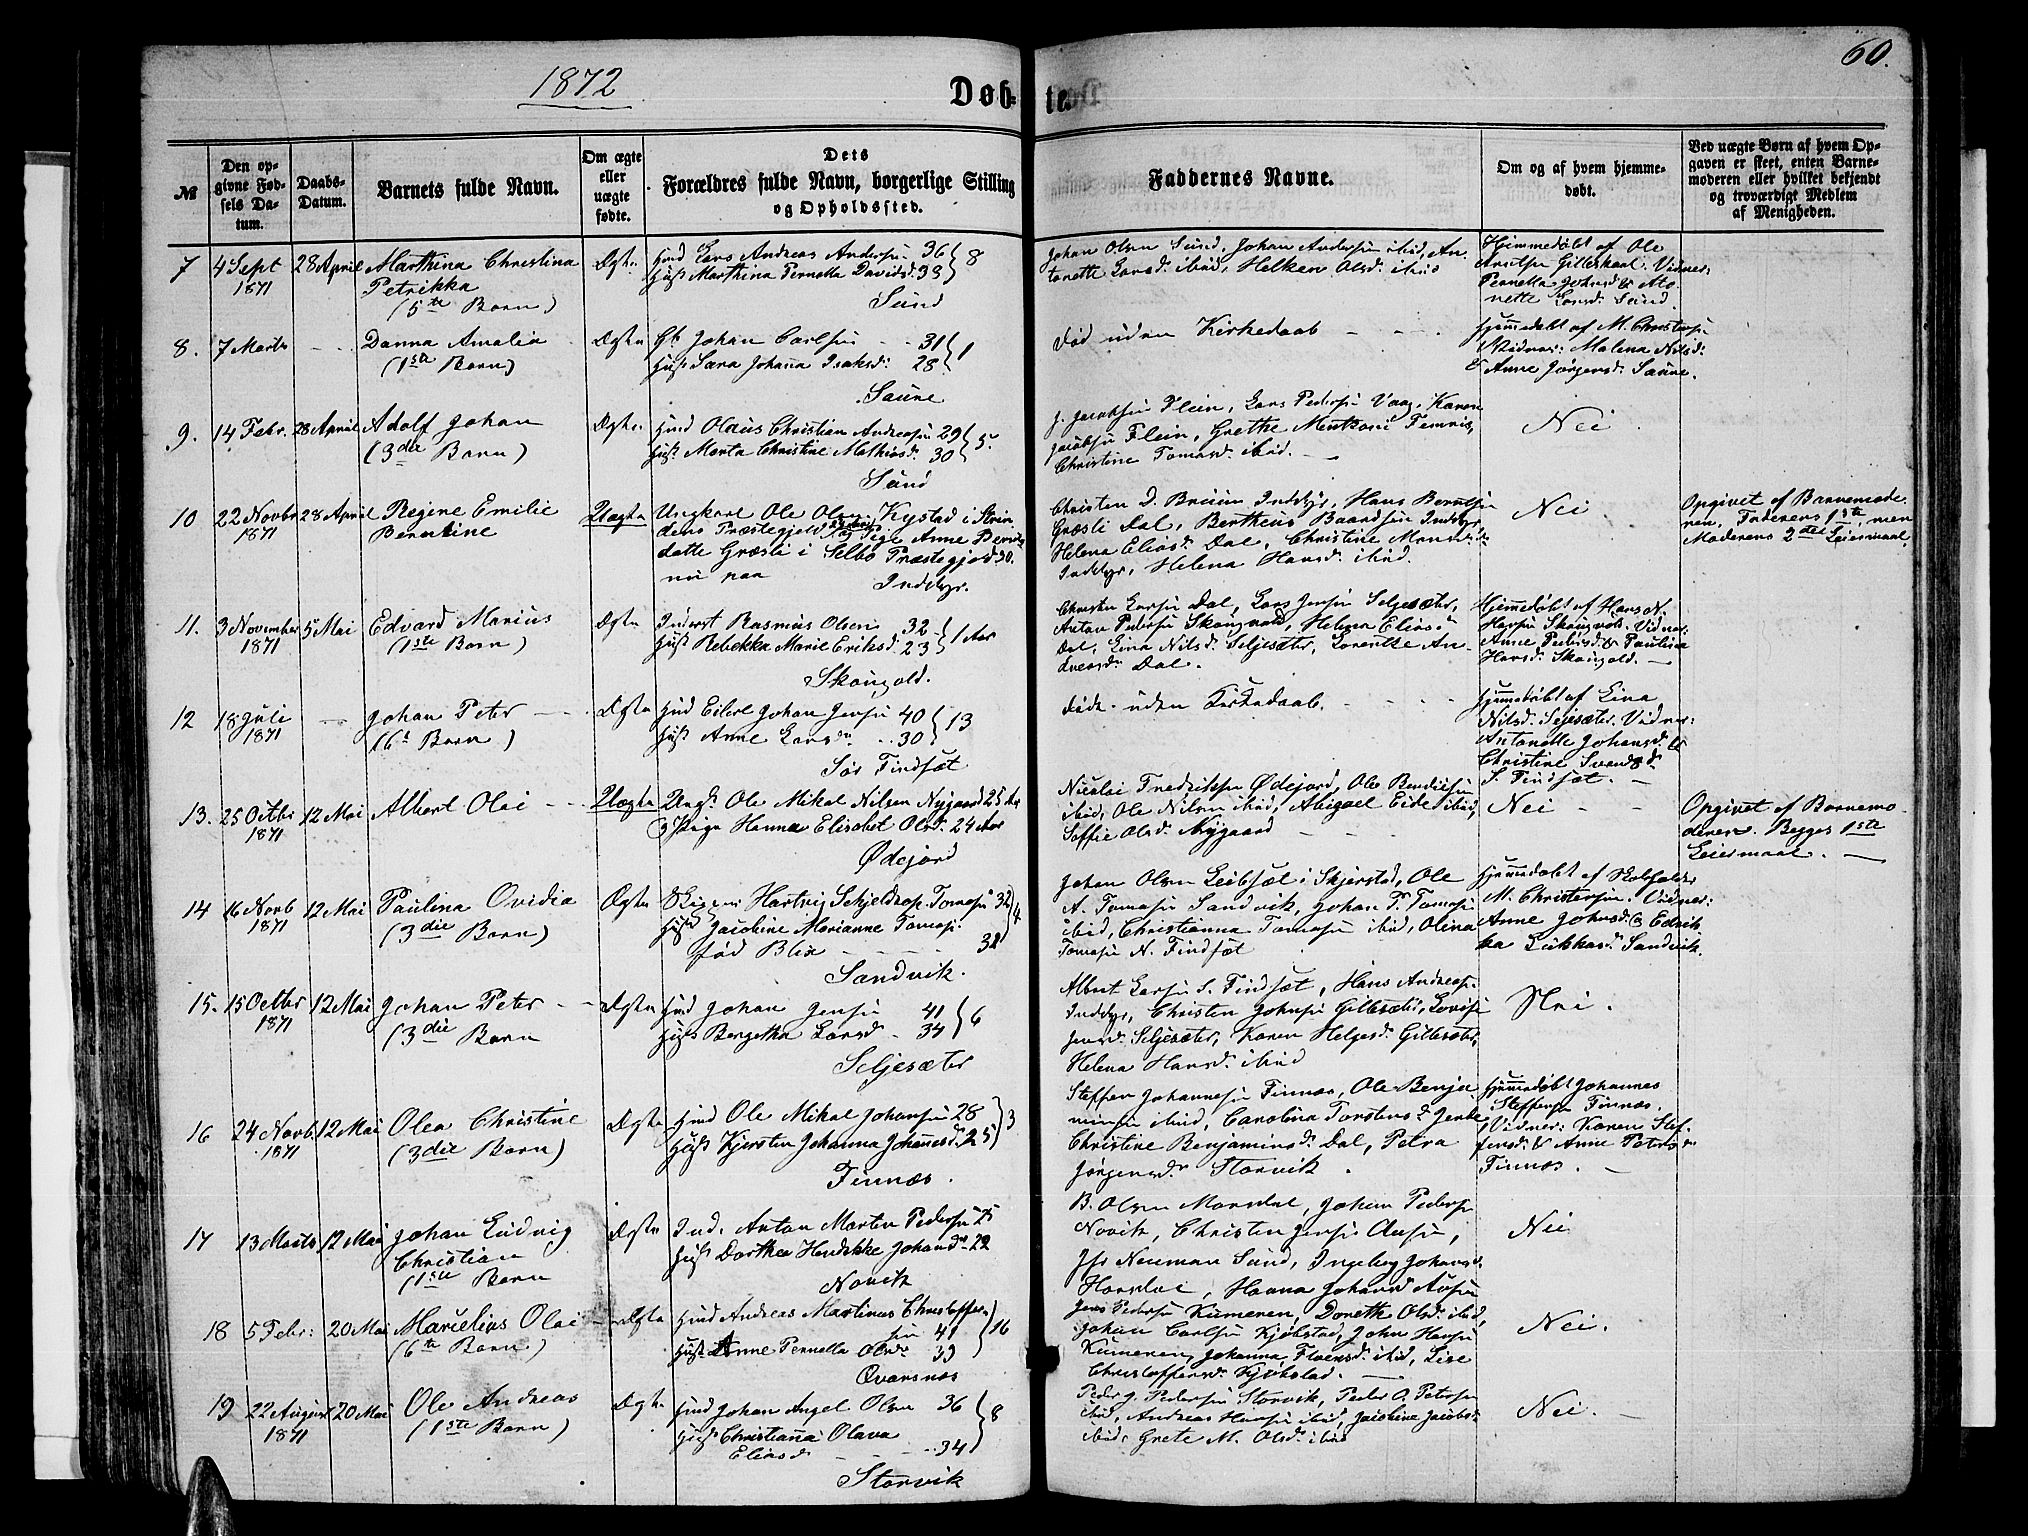 1872
Døb-
te.
60.
№
Den op-
givne Fød-
sels Da-
tum.
Daabs-
Datum.
Barnets fulde Navn.
Om ægte
eller
uægte
fødte.
Dets
Forældres fulde Navn, borgerlige Stilling
og Opholdssted.
Faddernes Navne.
Om og af hvem hjemme-
døbt.
Ved uægte Børn af hvem Op-
gaven er skeet, enten Barne-
moderen eller hvilket bekjendt
og troværdigt Medlem
af Menigheden.
7 4 Sept 1871
28 April
Marthina Christina
Petrikka
(5te Barn)
Ægte
Hmd Lars Andreas Andersen 36
Hust Marthina Pernella Davidsd. 33
8
Sund
Johan Olsen Sund, Johan Andersen ibid, An-
tonette Larsd. ibid, Helken Olsd. ibid
Hjemmedøbt af Ole
Gilleskaal. Vidner:
Pernella Johnsd &
nette Larsd. Sund
8. 7 Marts
Danna Amalia
(1ste Barn)
Ægte
Johan Carlsen 31
Hust Sara Johana Isaksd. 28
1
Saure
død uden Kirkedaab
Hjemmedøbt af M. Christensen
Vidner: Malena Nilsd.
& Anne Jørgensd. Saure.
9. 14 Febr. 28 April
Adolf Johan
(3die Barn)
Ægte
Hmd Olaus Christian Andreasen 29
Hust. Marta Christine Mathiasd. 30
5
Sund
J. Jacobsen Flein, Lars Pedersen Vaag, Karen
Jacobsen Flein, Grethe
Christine Tomasd. ibid.
Nei
10 22 Novbr 1871
28 April
Regine Emilie
Berntine
Uægte
Ungkarl Ole Olsen Kystad i Strin-
dens Præstegjeld Pige Anne Bern-
dotte Græsli i Selbo Præstegjeld 30.
nu paa
Inddyr.
Christen D. Bruun Inddyr, Hans Berntsen
Græsli Dal, Bertheus Baardsen Inddyr,
Helena Eliasd. Dal, Christine Monsd.
Inddyr, Helena Hansd. ibid.
Nei
Opgivet af Barnemode-
ren. Faderens 1ste, men
Moderens 2det Leiermaal.
11. 3 November 1871
5 Mai
Edvard Marius
(1ste Barn)
Ægte
Inderst Rasmus Olsen 32
Hust Rebekka Marie Eriksd. 23
1 Aar
Skougvold.
Christen Larsen Dal, Lars Jensen Seljesæter,
Anton Pedersen Skougvold, Helena Eliasd.
Dal, Lina Nilsd. Seljesæter, Lorentze An-
dreasd. Dal.
Hjemmedøbt af Hans N.
Hansen Skougvold. Vidner:
Anne Pedersd. & Paulina
Hansd. Skougvold.
12 18 Juli 1871
Johan Peter
(6t Barn)
Ægte
Hmd Eilert Johan Jensen 40
Hust Anne Larsd. 30
13
Sør Findsæt
død uden Kirkedaab.
Hjemmedøbt af Lina
Nilsd. Seljesæter. Vidner:
Antonette Johansd. &
Christine Svendsd.
S. Findsæt.
13. 25 Octbr 1871
12 Mai
Albert Olai
Uægte
Ungk. Ole Mikal Nilsen Nygaard 25 Aar
& Pige Hanna Elisabet Olsd. 24 Aar
Ødejord
Nicolai Fredriksen Ødejord, Ole Bendixsen
ibid, Ole Nilsen ibid, Abigael Eide ibid,
Soffie Olsd. Nygaard
Nei
Opgivet af Barnemo-
deren. Begges 1ste
Leiermaal.
14 16 Novb 1871
12 Mai
Paulina Ovidia
(3die Barn)
Ægte
Hartvig Schjeldrop Tomasen 32
Hust Jacobine Marianne Tomas.
fød Blix 38
4
Sandvik.
Johan Olsen Leibsæt i Skjerstad, Ole
A. Tomasen Sandvik, Johan P. Tomasen
ibid, Christianna Tomasen ibid, Olina
Tomasen N. Findsæt
Hjemmedøbt af
M. Christensen. Vidner:
Anne Johnsd. & Edrik-
ka Lukkasd. Sandvik.
15. 15 Octbr 1871
12 Mai
Johan Peter
(3die Barn
Ægte
Hmd Johan Jensen 41
Hust Bergetha Larsd. 34
6
Seljesæter
Albert Larsen S. Findsæt, Hans Andreas.
Inddyr, Christen Johnsen Gillesæter, Lovise
Jensd. Seljesæter, Karen Helgesd. Gillesæter,
Helena Hansd. ibid
Nei.
16 24 Novb. 1871
12 Mai
Olea Christine
(3die Barn)
Ægte
Hmd Ole Mikal Johansen 28
Hust Kjersten Johanna Johansd. 25
3
Finnæs.
Steffen Johannesen Finnæs, Ole Benja-
minsen ibid, Carolina Torstensd.
Christine Benjaminsd. Dal, Petra
Jørgensd. Storvik.
Hjemmedøbt Johannes
Steffensen Finnæs.
Vidner: Karen Stef-
fensd. & Anne Petersd.
Finnæs.
17 13 Marts 12 Mai
Johan Ludvig
Christian
(1ste Barn
Ægte
Ind. Anton Morten Pedersen 25
Hust Dorthea Hendrikke Johansd. 22
Novik
B. Olsen Marsdal, Johan Pedersen
Novik, Christen Jensen
Neuman Sund, Ingeborg Johansd.
Hanna Johansd
Nei
18 5 Febr. 20 Mai
Marselius Olai
(6te Barn)
Ægte
Hmd Andreas Martinus Christoffer-
sen 41
Hust Anne Pernella Olsd. 39
16
Øvarsnæs
Jens Pedersen Kumeren, Dorette Olsd. ibid,
Johan Carlsen Kjøbstad, John Hansen
Kumeren, Johanna ibid, Lise
Christoffersd. Kjøbstad.
Nei.
19 22 August 1871
20 Mai
Ole Andreas
(1ste Barn)
Ægte
Hmd Johan Angel Olsen 36
Hust Christiana Olava
Eliasd. 34
8
Storvik
Peder J. Pedersen Storvik, Peder O. Petersen
ibid, Andreas Hansen ibid, Jacobina Jacobsd.
ibid, Grete M. Olsd. ibid
Nei.